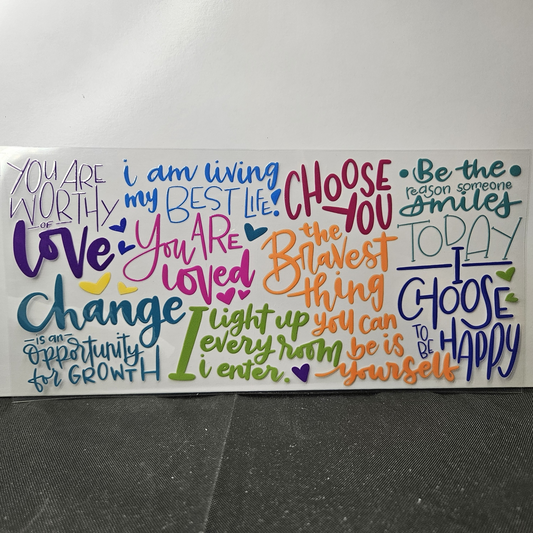 YOU ARE
WORTHY
OF
Love
i am living
my BEST LIFE!
CHOOSE
YOU
Be the
reason someone
smiles
You ARE
loved
the
Bravest
thing
you can
be is
yourself
TODAY
I
CHOOSE
TO BE
HAPPY
Change
is an
opportunity
for GROWTH
I light up
every room
i enter.